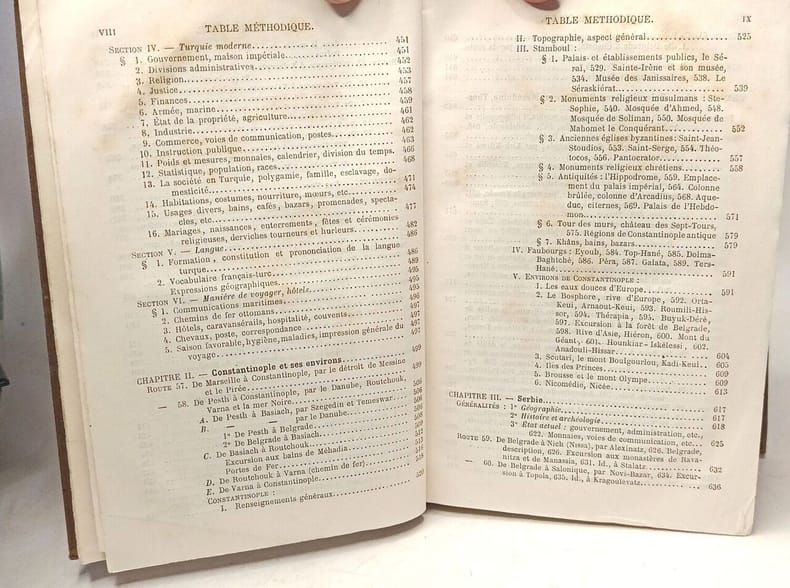 VIII
TABLE MÉTHODIQUE.
SECTION IV. — Turquie moderne 451
§ 1. Gouvernement, maison impériale 451
2. Divisions administratives 452
3. Religion 453
4. Justice 457
5. Finances 458
6. Armée, marine 459
7. État de la propriété, agriculture 461
8. Industrie 462
9. Commerce, voies de communication, postes 462
10. Instruction publique 463
11. Poids et mesures, monnaies, calendrier, division du temps. 466
12. Statistique, population, races 468
13. La société en Turquie, polygamie, famille, esclavage, do-
mesticité 471
14. Habitations, costumes, nourriture, mœurs, etc. 474
15. Usages divers, bains, cafés, bazars, promenades, specta-
cles, etc. 477
16. Mariages, naissances, enterrements, fêtes et cérémonies
religieuses, derviches tourneurs et hurleurs 482
SECTION V. — Langue 486
§ 1. Formation, constitution et prononciation de la langue
turque 486
2. Vocabulaire français-turc
Expressions géographiques 495
SECTION VI. — Manière de voyager, hôtels 495
§ 1. Communications maritimes 495
2. Chemins de fer ottomans 496
3. Hôtels, caravansérails, hospitalité, couvents 497
4. Chevaux, poste, correspondance 497
5. Saison favorable, hygiène, maladies, impression générale du
voyage 499
CHAPITRE II. — Constantinople et ses environs 499
ROUTE 57. De Marseille à Constantinople, par le détroit de Messine
et le Pirée
— 58. De Pesth à Constantinople, par le Danube, Routchouk,
Varna et la mer Noire
A. De Pesth à Basiach, par Szegedin et Temeswar
B. — — par le Danube
1º De Pesth à Belgrade
2º De Belgrade à Basiach
C. De Basiach à Routchouk
Excursion aux bains de Méhadia
Portes de Fer
D. De Routchouk à Varna (chemin de fer)
E. De Varna à Constantinople
CONSTANTINOPLE : 520
I. Renseignements généraux
TABLE METHODIQUE.
IX
II. Topographie, aspect général 525
III. Stamboul :
§ 1. Palais et établissements publics, le Sé-
rai, 529. Sainte-Irène et son musée,
534. Musée des Janissaires, 538. Le
Séraskiérat 539
§ 2. Monuments religieux musulmans : Ste-
Sophie, 540. Mosquée d'Ahmed, 548.
Mosquée de Soliman, 550. Mosquée de
Mahomet le Conquérant 552
§ 3. Anciennes églises byzantines : Saint-Jean-
Stoudios, 553. Saint-Serge, 554. Théo-
tocos, 556. Pantocrator 557
§ 4. Monuments religieux chrétiens 558
§ 5. Antiquités : l'Hippodrome, 559. Emplace-
ment du palais impérial, 564. Colonne
brûlée, colonne d'Arcadius, 568. Aque-
duc, citernes, 569. Palais de l'Hebdo-
mon 571
§ 6. Tour des murs, château des Sept-Tours,
575. Régions de Constantinople antique 579
§ 7. Khâns, bains, bazars 579
IV. Faubourgs : Eyoub, 584. Top-Hané, 585. Dolma-
Baghtché, 586. Péra, 587. Galata, 589. Ters-
Hané 591
V. ENVIRONS DE CONSTANTINOPLE :
1. Les eaux douces d'Europe 591
2. Le Bosphore, rive d'Europe, 592. Orta-
Keui, Arnaout-Keui, 593. Roumili-His-
sor, 594. Thérapia, 595. Buyuk-Déré,
597. Excursion à la forêt de Belgrade,
598. Rive d'Asie, Hiéron, 600. Mont du
Géant, 601. Hounkiar-Iskélessi, 602.
Anadouli-Hissar 604
3. Scutari, le mont Boulgourlou, Kadi-Keui 605
4. Iles des Princes 609
5. Brousse et le mont Olympe 609
6. Nicomédie, Nicée 613
CHAPITRE III. — Serbie 617
GÉNÉRALITÉS : 1º Géographie 617
2º Histoire et archéologie 618
3º Etat actuel : gouvernement, administration, etc.,
622. Monnaies, voies de communication, etc. 625
ROUTE 59. De Belgrade à Nich (Nissa), par Alexinatz, 626. Belgrade,
description, 626. Excursion aux monastères de Rava-
nitza et de Manassia, 631. Id., à Stalatz 632
— 60. De Belgrade à Salonique, par Novi-Bazar, 634. Excur-
sion à Topola, 635. Id., à Kragoulévatz 636